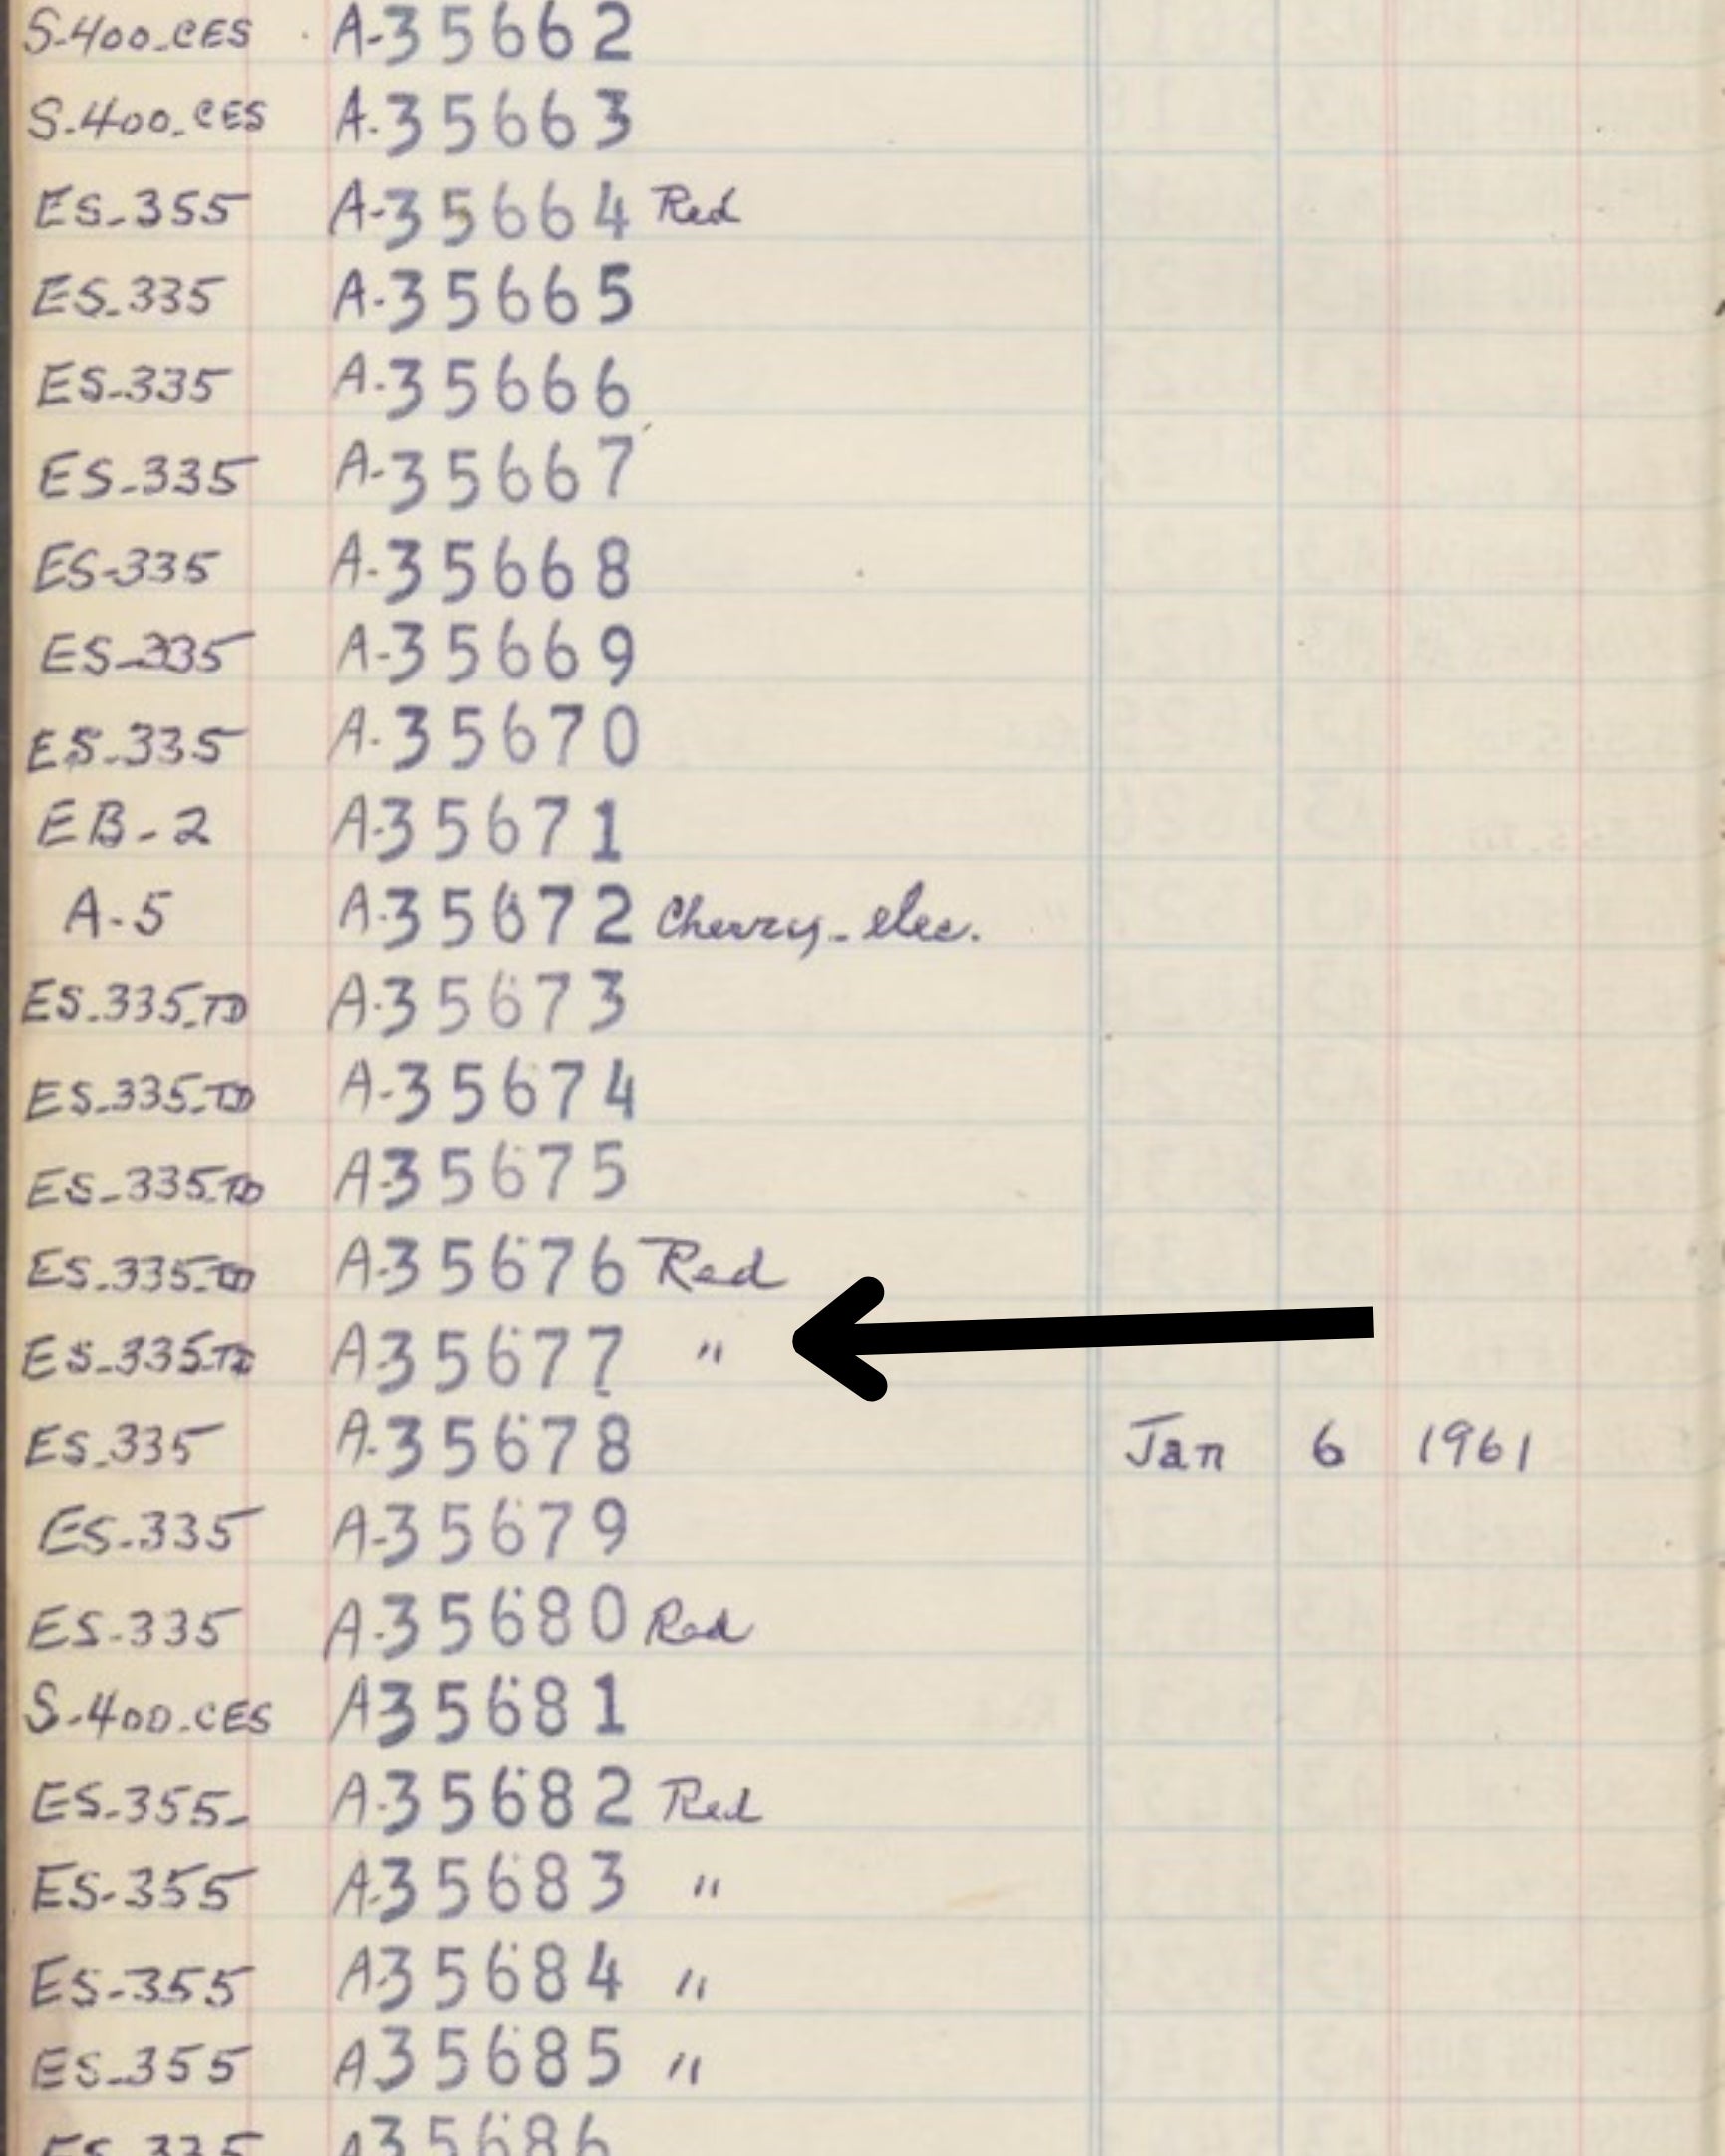 S-400-CES A-35662
S-400-CES A-35663
ES-355 A-35664 Red
ES-335 A-35665
ES-335 A-35666
ES-335 A-35667
ES-335 A-35668
ES-335 A-35669
ES-335 A-35670
EB-2 A-35671
A-5 A-35672 Cherry-elec.
ES-335-TD A-35673
ES-335-TD A-35674
ES-335-TD A-35675
ES-335-TD A-35676 Red
ES-335-TD A35677 "
ES-335 A-35678 Jan 6 1961
ES-335 A-35679
ES-335 A-35680 Red
S-400-CES A35681
ES-355- A-35682 Red
ES-355 A-35683 "
ES-355 A35684 "
ES-355 A35685 "
ES-335 A35686